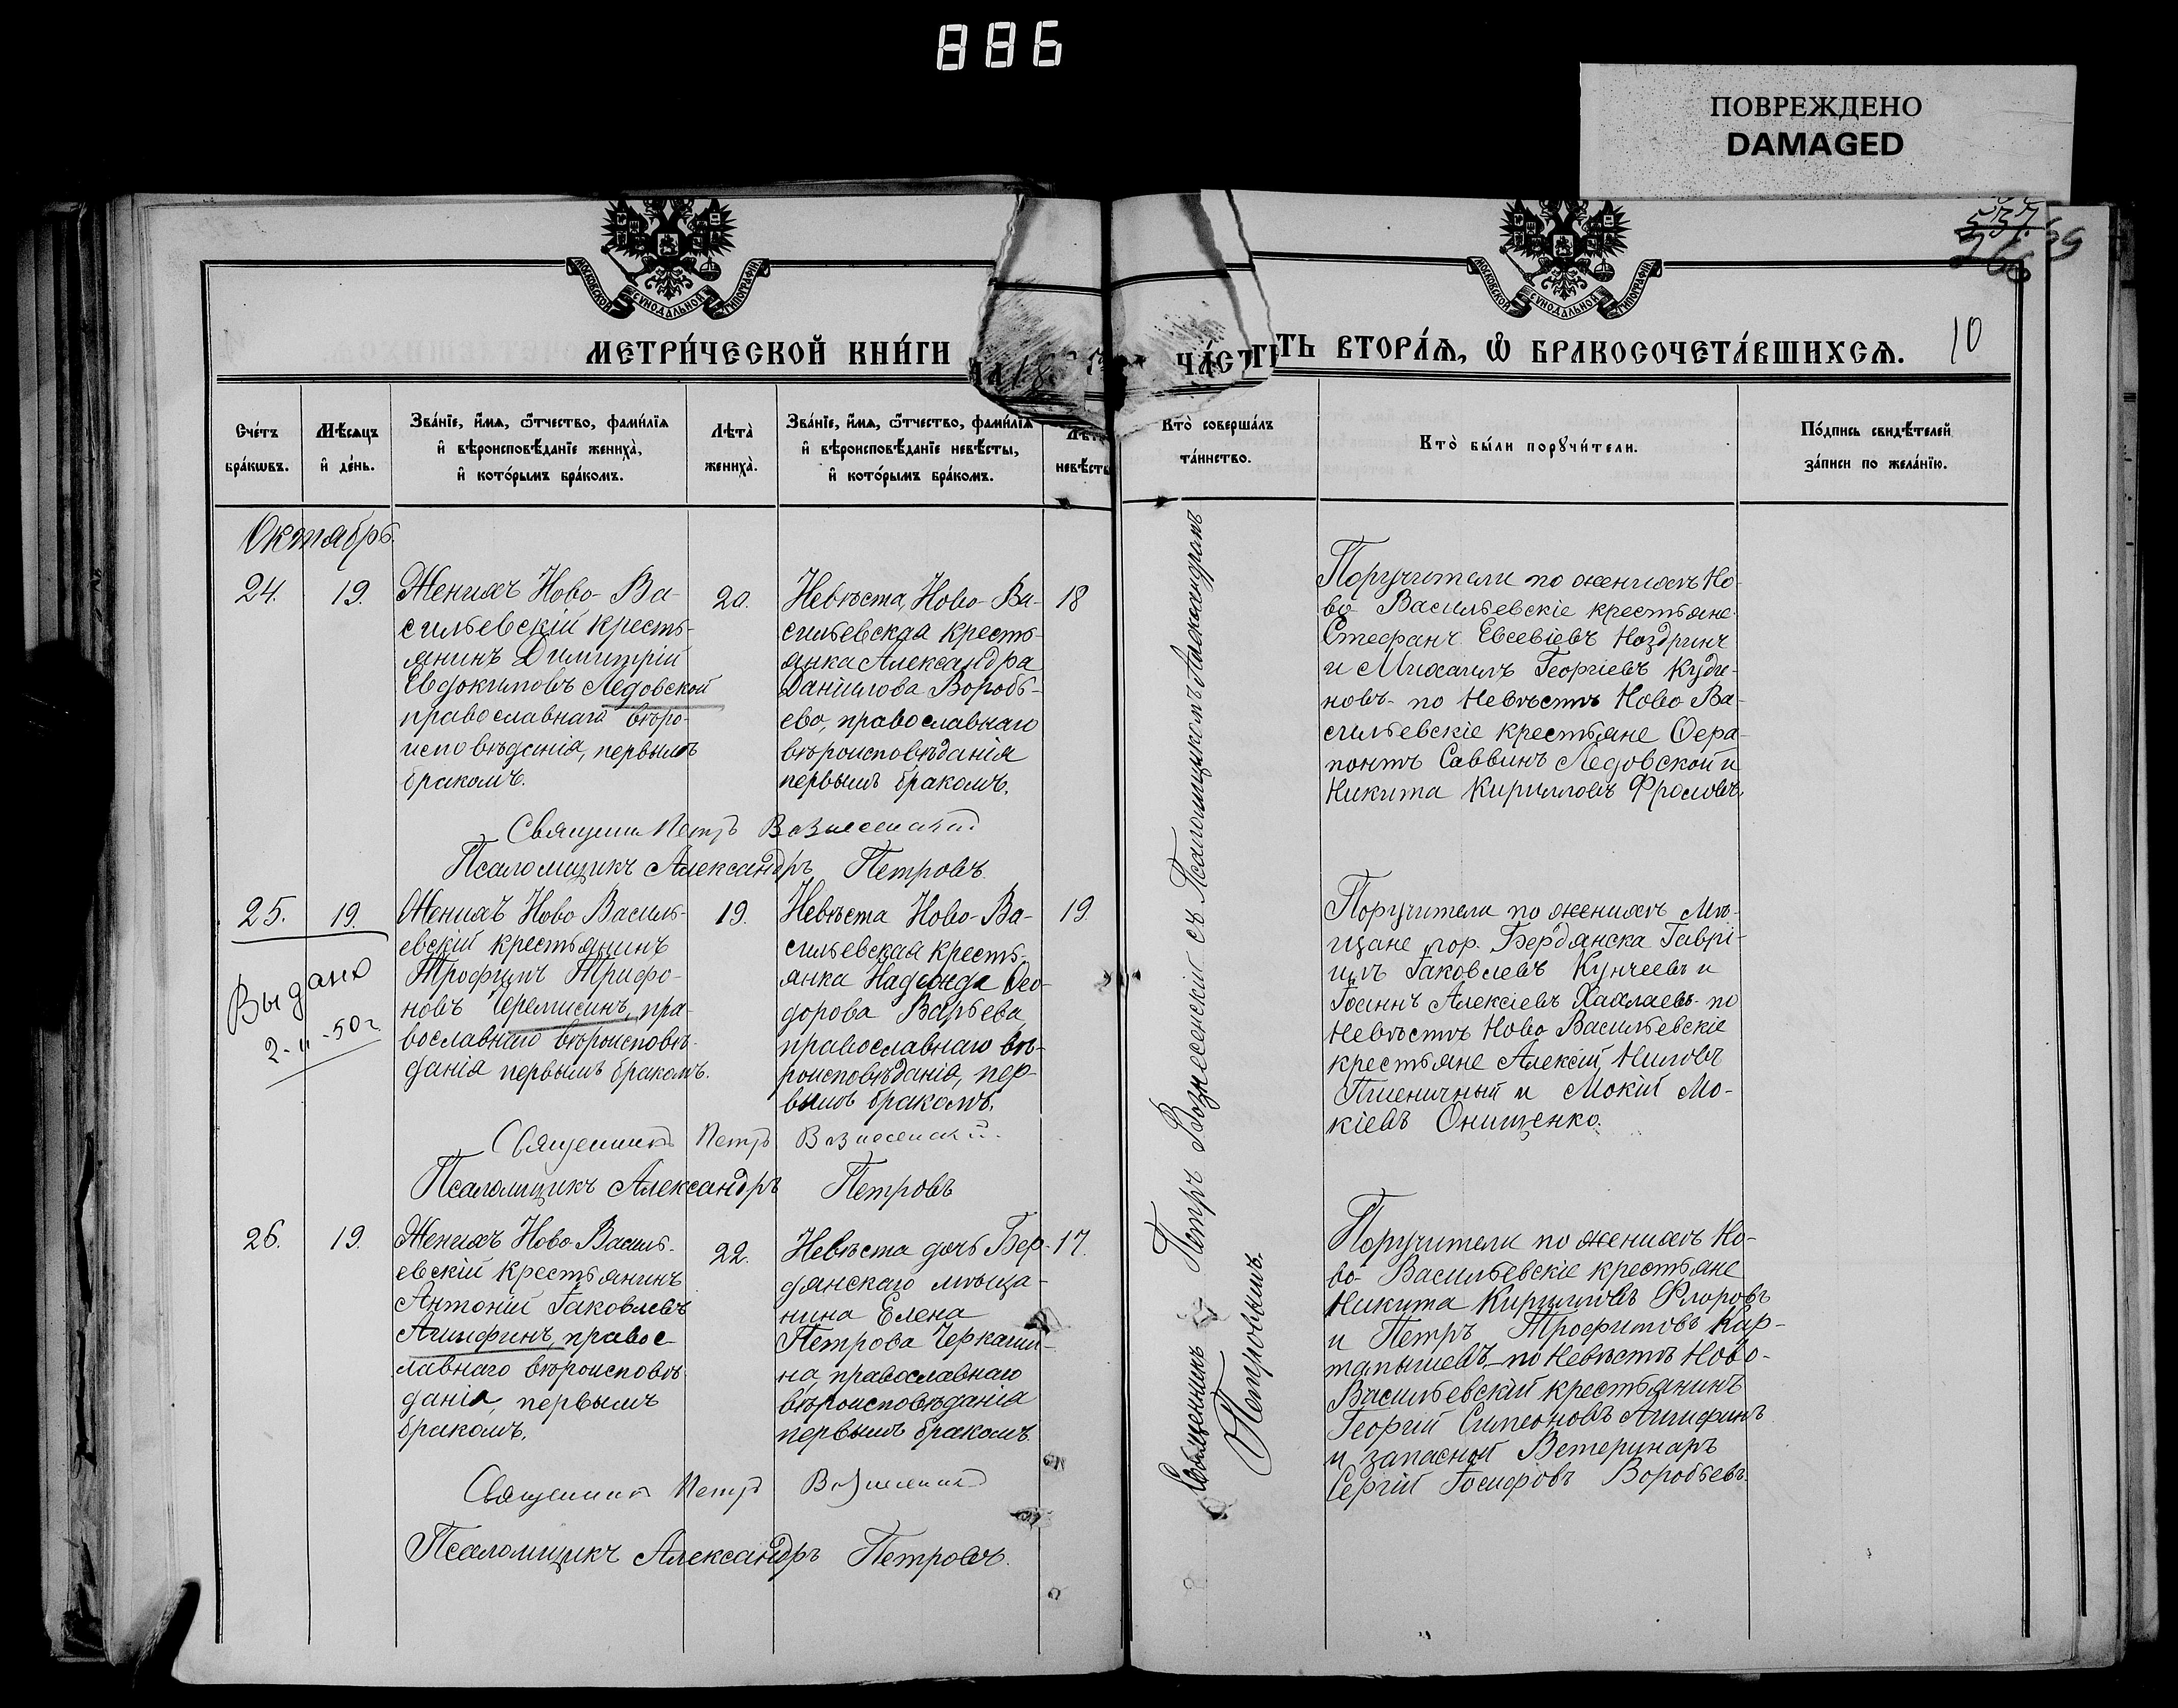 886
ПОВРЕЖДЕНО
DAMAGED
537.
266
69
10
МОСКОВСКОЙ СѴНОДАЛЬНОЙ ТИПОГРАФІИ
МОСКОВСКОЙ СѴНОДАЛЬНОЙ ТИПОГРАФІИ
МЕТРИ́ЧЕСКОЙ КНИ́ГИ
ЧА́СТЬ ВТОРА́Я, Ѡ БРАКОСОЧЕТА́ВШИХСЯ.
Сче́тъ бра́кѡвъ.
Мѣ́сяцъ и҆ де́нь.
Зва́нїе, и҆́мя, ѻ҆́тчество, фами́лїя
и҆ вѣроисповѣ́данїе жениха̀,
и҆ кото́рымъ бра́комъ.
Лѣта̀ жениха̀.
Зва́нїе, и҆́мя, ѻ҆́тчество, фами́лїя
и҆ вѣроисповѣ́данїе невѣ́сты,
и҆ кото́рымъ бра́комъ.
Лѣта̀ невѣ́сты
Кто̀ соверша́лъ та́инство.
Кто̀ бы́ли порꙋчи́тели.
По́дпись свидѣ́телей за́писи по жела́нїю.
Октябрь.
24.
19.
Женихъ Ново-Ва-
сильевскій кресть-
янинъ Димитрій
Евдокимовъ Ледовской
православнаго вѣро-
исповѣданія, первымъ
бракомъ.
20.
Невѣста, Ново-Ва-
сильевская кресть-
янка Александра
Даніилова Воробь-
ева, православнаго
вѣроисповѣданія
первымъ бракомъ.
18
Поручители по женихѣ Но-
во Васильевскіе крестьяне
Стефанъ Евсевіевъ Ноздринъ
и Михаилъ Георгіевъ Куди-
новъ- по Невѣстѣ Ново Ва-
сильевскіе крестьяне Ѳера-
понтъ Саввинъ Ледовской и
Никита Кирилловъ Фроловъ.
Священн Петръ Вознесенскій
Псаломщикъ Александръ Петровъ.
25.
19.
Выдано
2-11-50г.
Женихъ Ново Василь-
евскій крестьянинъ
Трофимъ Трифо-
новъ Черемисинъ, пра-
вославнаго вѣроисповѣ-
данія первымъ бракомъ.
19.
Невѣста Ново-Ва-
сильевская кресть-
янка Надежда Ѳео-
дорова Варьева
православнаго вѣ-
роисповѣданія, пер-
вымъ бракомъ.
19.
Поручители по женихѣ Мѣ-
щане гор. Бердянска Гаврі-
илъ Іаковлевъ Кунчеевъ и
Іоаннъ Алексіевъ Хахлаевъ- по
Невѣстѣ Ново Васильевскіе
крестьяне Алексій Ниловъ
Пшеничный и Мокій Мо-
кіевъ Онищенко.
Священникъ Петръ Вознесенскій.
Псаломщикъ Александръ Петровъ
26.
19.
Женихъ Ново-Василь-
евскій крестьянинъ
Антоній Іаковлевъ
Агипфинъ, правос-
лавнаго вѣроисповѣ-
данія, первымъ
бракомъ.
22.
Невѣста дочь Бер-
дянскаго мѣща-
нина Елена
Петрова Черкаши-
на, православнаго
вѣроисповѣданія
первымъ бракомъ.
17.
Поручители по женихѣ Но-
во- Васильевскіе крестьяне
Никита Кирилловъ Флоровъ
и Петръ Трофимовъ Кар-
тапышевъ- по Невѣстѣ Ново-
Васильевскій крестьянинъ
Георгій Симеоновъ Агипфинъ
и запасной Ветеринаръ
Сергій Іосифовъ Воробьевъ.
Священникъ Петръ Вознесенскій
Псаломщикъ Александръ Петровъ.
Священникъ Петръ Вознесенскій съ Псаломщикомъ Александромъ
Петровымъ.